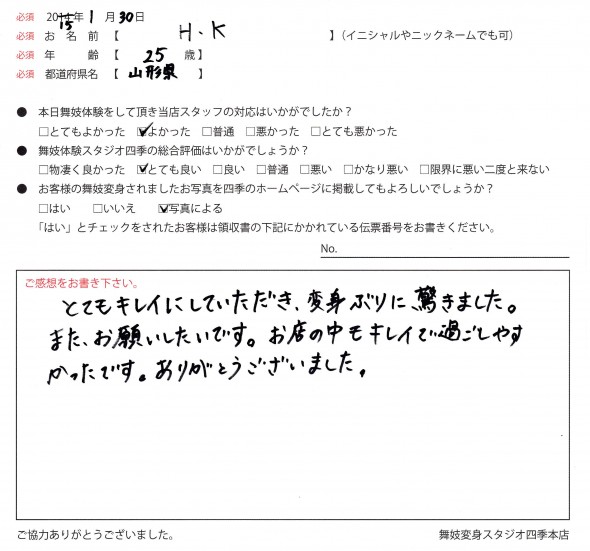 必須 2014年 1 月 30日
15
必須 お 名 前 【 H.K 】(イニシャルやニックネームでも可)
必須 年 齢 【 25 歳】
必須 都道府県名 【 山形県 】
● 本日舞妓体験をして頂き当店スタッフの対応はいかがでしたか？
□とてもよかった ☑よかった □普通 □悪かった □とても悪かった
● 舞妓体験スタジオ四季の総合評価はいかがでしょうか？
□物凄く良かった ☑とても良い □良い □普通 □悪い □かなり悪い □限界に悪い二度と来ない
● お客様の舞妓変身されましたお写真を四季のホームページに掲載してもよろしいでしょうか？
□はい □いいえ ☑写真による
「はい」とチェックをされたお客様は領収書の下記にかかれている伝票番号をお書きください。
No.
ご感想をお書き下さい。
とてもキレイにしていただき、変身ぶりに、驚きました。
また、お願いしたいです。お店の中もキレイで過ごしやす
かったです。ありがとうございました。
ご協力ありがとうございました。 舞妓変身スタジオ四季本店